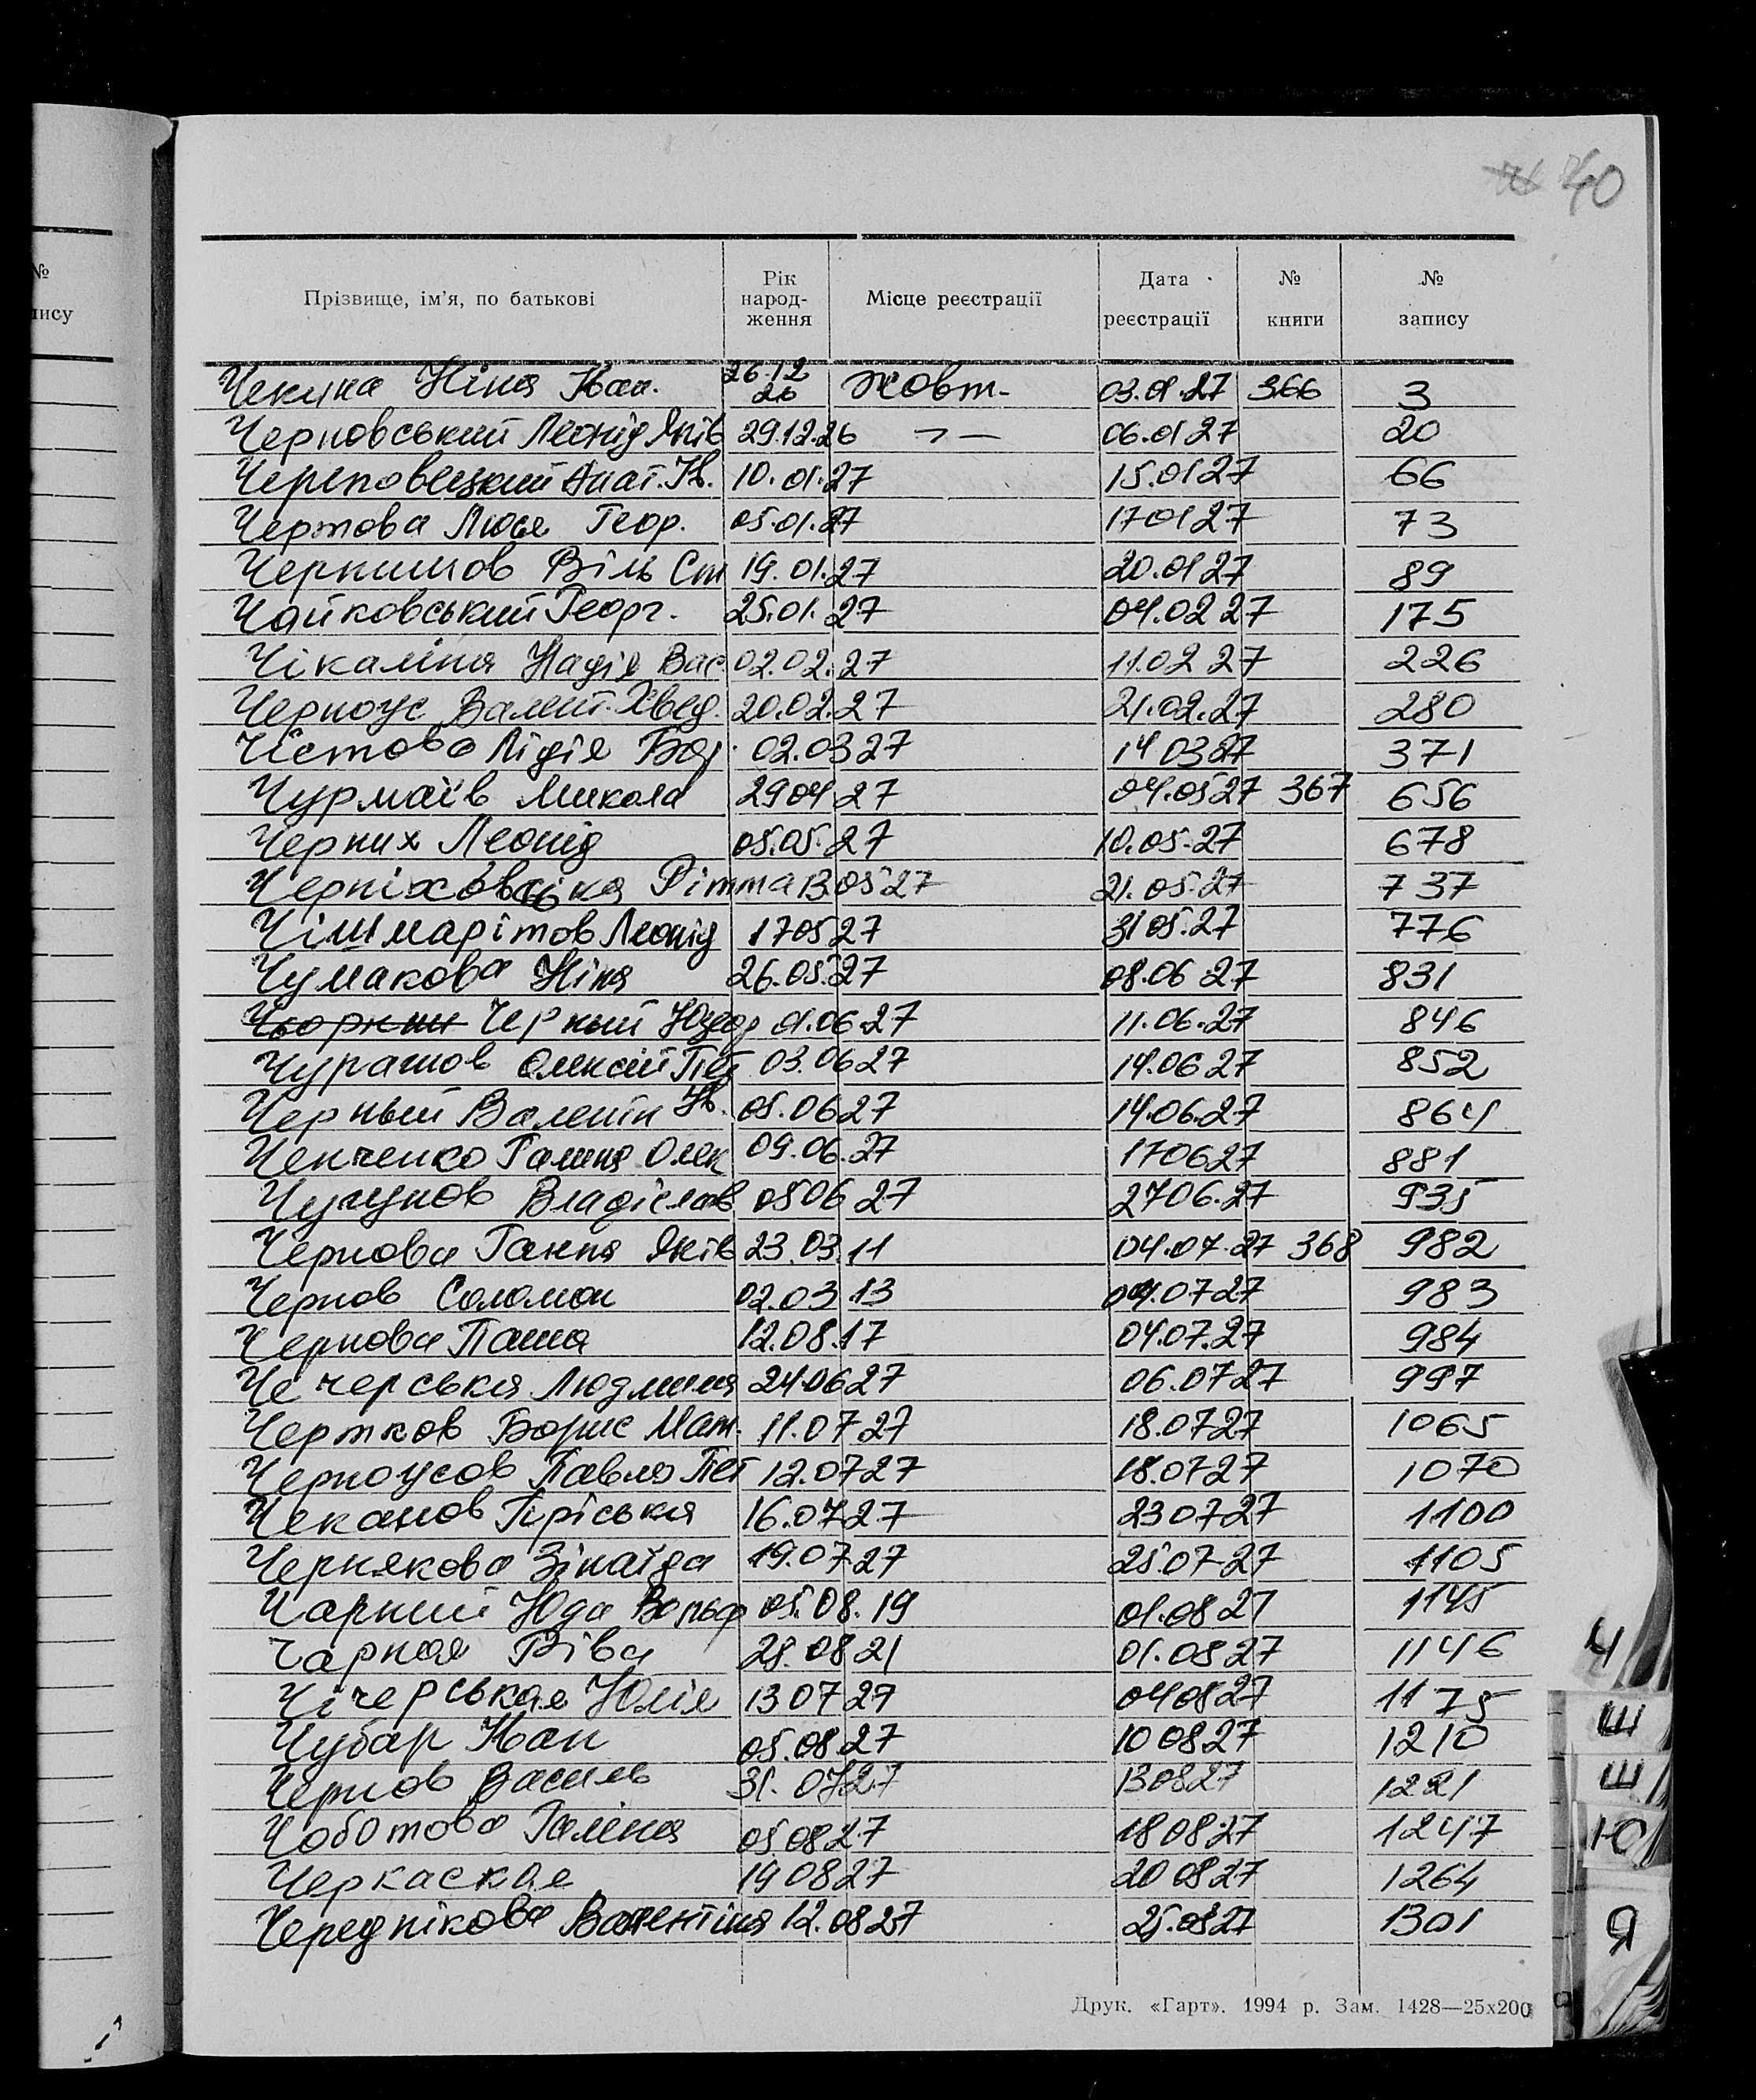 40
№
пису
Прізвище, ім'я, по батькові Рік народ-ження Місце реєстрації Дата реєстрації № книги № запису
Чекина Ніна Іван. 26.12 26 Жовт. 03.01.27 366 3
Черновський Леонід Яків 29.12.26 —"— 06.01 27 20
Череповецкий Анат. Ів. 10.01.27 15.01 27 66
Чертова Люся Геор. 05.01.27 17 01 27 73
Чернишов Віль Ст 19.01.27 20.01 27 89
Чайковський Георг. 25.01.27 04.02 27 175
Чікаліна Надія Вас 02.02.27 11.02 27 226
Черноус Валент. Хвед. 20.02.27 21.02.27 280
Чістова Лідія Бор. 02.03 27 14 03 27 371
Чурмаїв Микола 29 04 27 04.05 27 367 656
Черних Леонід 05.05.27 10.05.27 678
Черніховська Рімма 13 05 27 21.05.27 737
Чішмарітов Леонід 17 05 27 31 05.27 776
Чумакова Ніна 26.05.27 08.06 27 831
Черный 01.06.27 11.06.27 846
Чурашов Олексій Пет 03.06 27 14.06 27 852
Черный Валентін Ів. 05.06 27 14.06.27 864
Ченченко Галина Олек 09.06.27 17 06 27 881
Чугунов Владіслав 05 06 27 27 06.27 935
Чернова Ганна Яків 23.03.11 04.07.27 368 982
Чернов Соломон 02.03 13 04.07 27 983
Чернова Паша 12.08.17 04.07.27 984
Чечерська Людмила 24.06 27 06.07 27 997
Чертков Борис Мат. 11.07 27 18.07 27 1065
Черноусов Павло Пет 12.07 27 18.07 27 1070
Чеканов 16.07 27 23 07 27 1100
Чернякова Зінаїда 19.07 27 25.07 27 1105
Чарний Юда Вольф 05.08.19 01.08 27 1145
Чарная Ріва 28.08 21 01.08 27 1146
Чічерськая Юлія 13 07 27 04 08 27 1175
Чубар Іван 05.08 27 10 08 27 1210
Чернов Василь 31.07 27 13 08 27 1221
Чоботова Галіна 05.08 27 18 08 27 1247
Черкаская 19 08 27 20 08 27 1264
Череднікова Валентіна 12.08 27 25.08 27 1301
Друк. «Гарт». 1994 р. Зам. 1428—25х200
Ч
Ш
Щ
Ю
Я